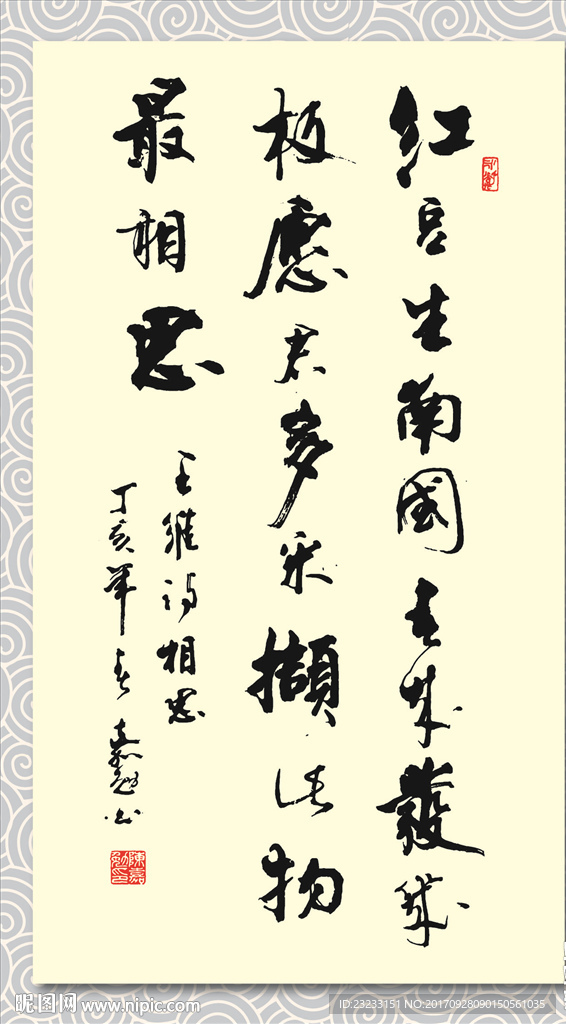 红豆生南國春来發幾
枝愿君多采擷此物
最相思
王維诗相思
丁亥年春嘉勉书
陳嘉勉印
昵图网 www.nipic.com
ID:23233151 NO:20170928090150561035